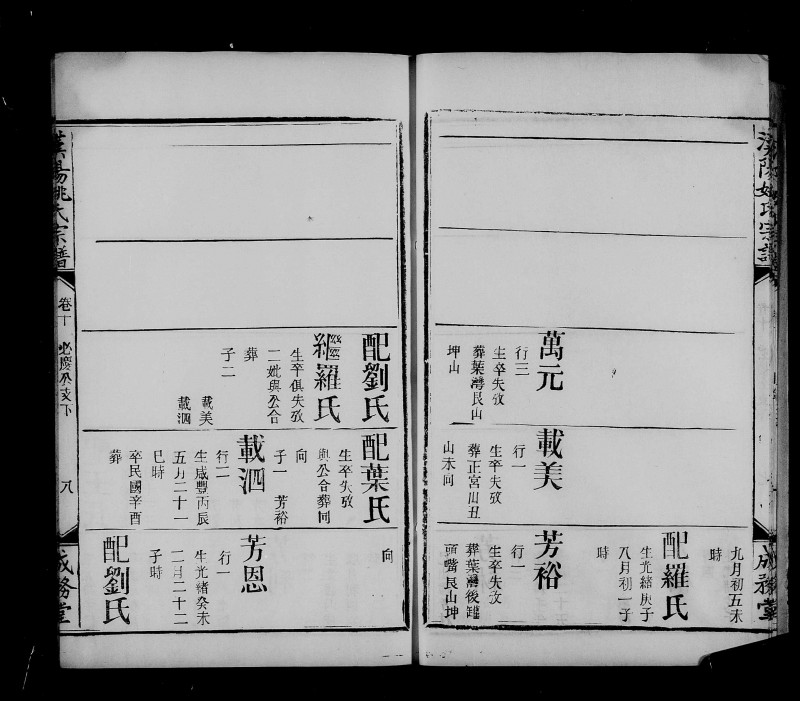 漢陽姚氏宗譜
成務堂
萬元
行三
生卒失攷
葬葉灣艮山
坤山
載美
行一
生卒失攷
葬正宮山丑
山未向
九月初五未
時
配羅氏
生光緒庚子
八月初一子
時
芳裕
行一
生卒失攷
葬葉灣後鑵
頭嘴艮山坤
配劉氏
繼羅氏
生卒俱失攷
二妣與公合
葬
子二
載美
載泗
配葉氏
生卒失攷
與公合葬同
向
子一 芳裕
載泗
行二
生咸豐丙辰
五月二十一
巳時
卒民國辛酉
葬
向
芳恩
行一
生光緒癸未
二月二十二
子時
配劉氏
漢陽姚氏宗譜
卷十
八
成務堂